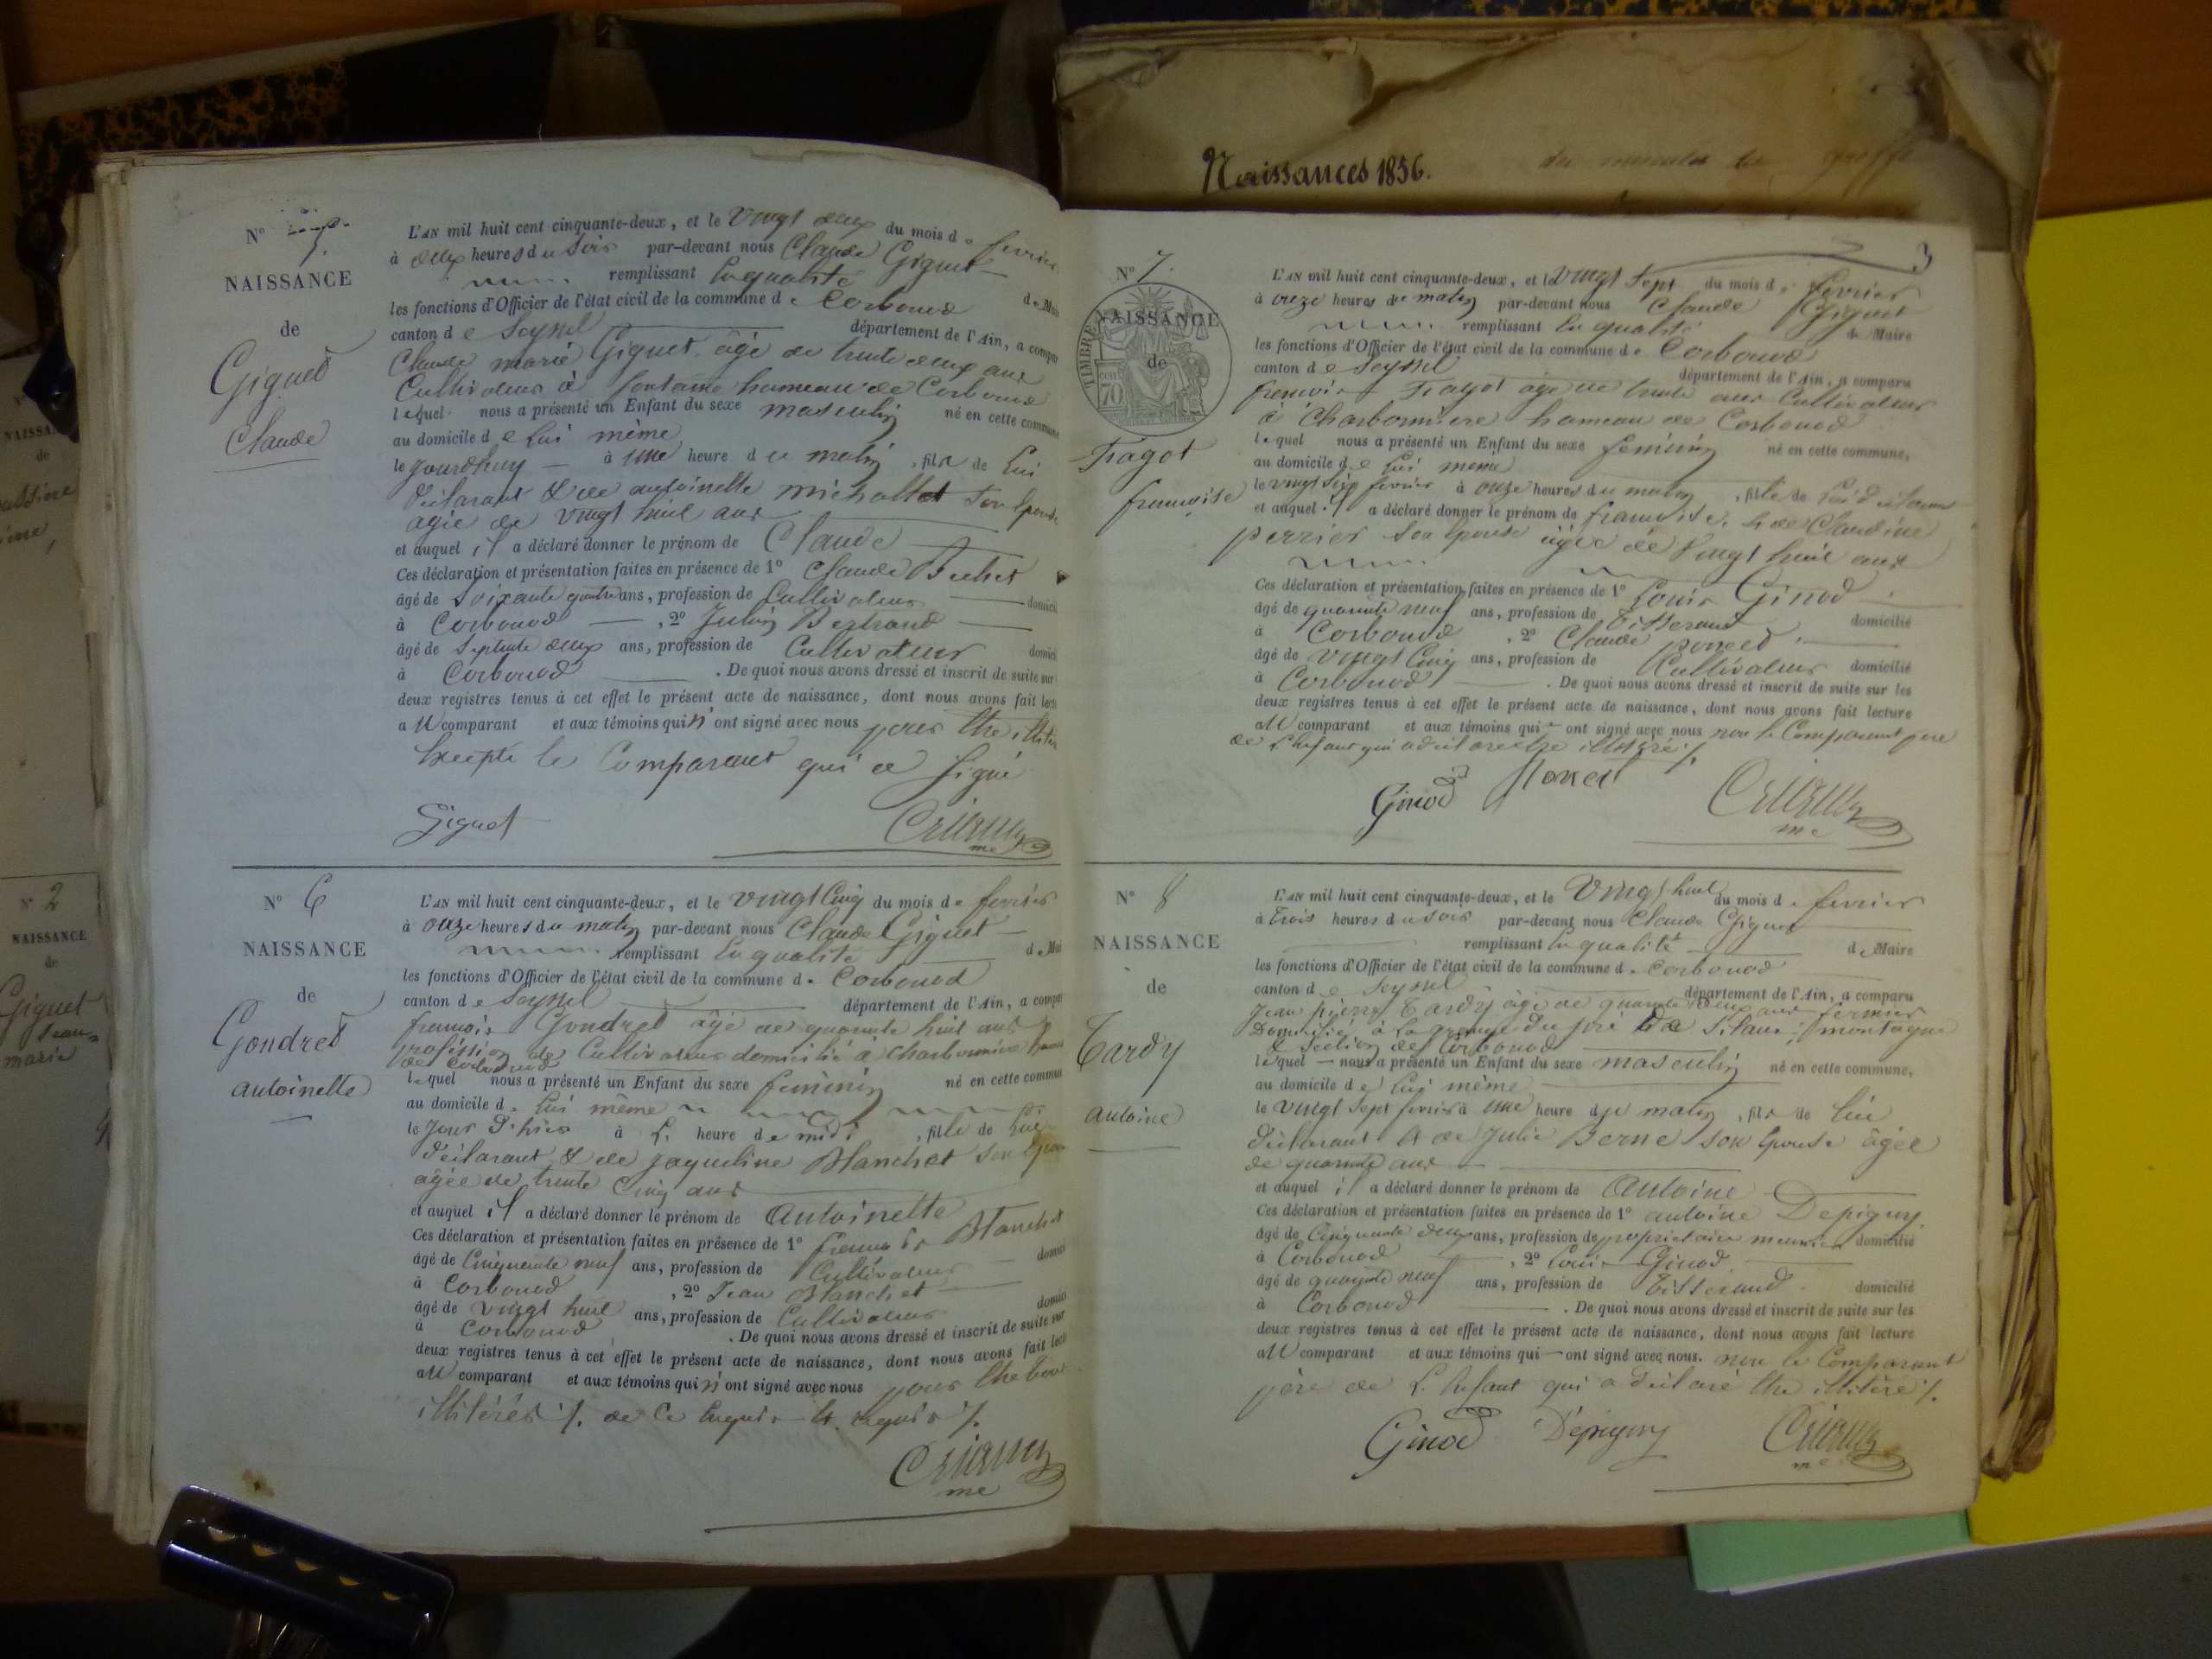 Naissances 1856.
N° 5.
NAISSANCE
de
Giguet
Claude
L'AN mil huit cent cinquante-deux, et le vingt deux du mois de fevrier
à deux heures du soir par-devant nous Claude Giguet
remplissant En qualité de Mai
les fonctions d'Officier de l'état civil de la commune de Corbonod
canton de Seyssel département de l'Ain, a compa
Claude marie Giguet âgé de trente deux ans
Cultivateur à fontaine hameau de Corbonod
lequel nous a présenté un Enfant du sexe masculin né en cette commune
au domicile de lui même
le jourdhuy à une heure du matin, fils de lui
déclarant & de antoinette michallet son Epouse
agée de vingt huit ans
et auquel il a déclaré donner le prénom de Claude
Ces déclaration et présentation faites en présence de 1° Claude
âgé de soixante quatre ans, profession de Cultivateur domicil
à Corbonod, 2° Bertrand
âgé de septante deux ans, profession de Cultivateur domici
à Corbonod. De quoi nous avons dressé et inscrit de suite sur
deux registres tenus à cet effet le présent acte de naissance, dont nous avons fait lect
au comparant et aux témoins qui n'ont signé avec nous pour Etre illiter
Excepté le Comparant qui a signé
Giguet
N° 6
NAISSANCE
de
Gondret
antoinette
L'AN mil huit cent cinquante-deux, et le vingt Cinq du mois de fevrier
à onze heures du matin par-devant nous Claude Giguet
remplissant En qualité de Mai
les fonctions d'Officier de l'état civil de la commune de Corbonod
canton de Seyssel département de l'Ain, a compa
francois Gondret âgé de quarante huit ans
profession de Cultivateur domicilié à charbonnière
de Corbonod
lequel nous a présenté un Enfant du sexe féminin né en cette commun
au domicile de lui même
le jour d'hier à L. heure de midi, fille de lui
déclarant & de jaqueline Blanchet son Epou
âgée de trente Cinq ans
et auquel il a déclaré donner le prénom de Antoinette
Ces déclaration et présentation faites en présence de 1° francois Blanchet
âgé de Cinquante neuf ans, profession de Cultivateur domici
à Corbonod, 2° Jean Blanchet
âgé de vingt huit ans, profession de Cultivateur domici
à Corbonod. De quoi nous avons dressé et inscrit de suite sur
deux registres tenus à cet effet le présent acte de naissance, dont nous avons fait lect
au comparant et aux témoins qui n'ont signé avec nous pour Etre tous
illitérés ./. de Ce Enquis & requis ./.
me
3
N° 7.
NAISSANCE
de
TIMBRE
70
Fagot
francoise
L'AN mil huit cent cinquante-deux, et le vingt sept du mois de fevrier
à onze heures du matin par-devant nous Claude Giguet
remplissant En qualité de Maire
les fonctions d'Officier de l'état civil de la commune de Corbonod
canton de Seyssel département de l'Ain, a comparu
francois Fagot âgé de trente ans Cultivateur
à Charbonniere hameau de Corbonod
lequel nous a présenté un Enfant du sexe feminin né en cette commune,
au domicile de lui meme
le vingt six fevrier à onze heures du matin, fille de lui déclarant
et auquel il a déclaré donner le prénom de francoise. & de Claudine
perrier son Epouse âgée de vingt huit ans
Ces déclaration et présentation faites en présence de 1° Louis Ginod
âgé de quarante neuf ans, profession de Tisserand domicilié
à Corbonod, 2° Claude poncet
âgé de vingt Cinq ans, profession de Cultivateur domicilié
à Corbonod. De quoi nous avons dressé et inscrit de suite sur les
deux registres tenus à cet effet le présent acte de naissance, dont nous avons fait lecture
au comparant et aux témoins qui ont signé avec nous non le Comparant père
de L'Enfant qui a déclaré Etre illitéré ./.
Ginod Poncet
me
N° 8
NAISSANCE
de
Tardy
antoine
L'AN mil huit cent cinquante-deux, et le vingt huit du mois de fevrier
à trois heures du soir par-devant nous Claude Giguet
remplissant En qualité de Maire
les fonctions d'Officier de l'état civil de la commune de Corbonod
canton de Seyssel département de l'Ain, a comparu
Jean pierre Tardy âgé de quarante deux ans fermier
Domicilié à la grange du pré montagne
& section de Corbonod
lequel nous a présenté un Enfant du sexe masculin né en cette commune,
au domicile de lui même
le vingt sept fevrier à une heure du matin, fils de lui
déclarant & de Julie Berne son Epouse âgée
de quarante ans
et auquel il a déclaré donner le prénom de Antoine
Ces déclaration et présentation faites en présence de 1° antoine Depigny
âgé de Cinquante deux ans, profession de propriétaire meunier domicilié
à Corbonod, 2° Louis Ginod
âgé de quarante neuf ans, profession de Tisserand domicilié
à Corbonod. De quoi nous avons dressé et inscrit de suite sur les
deux registres tenus à cet effet le présent acte de naissance, dont nous avons fait lecture
au comparant et aux témoins qui ont signé avec nous. non le Comparant
père de L'Enfant qui a déclaré Etre illitéré ./.
Ginod Dépigny
me
N° 2
NAISSANCE
de
Giguet
Jean-
marie